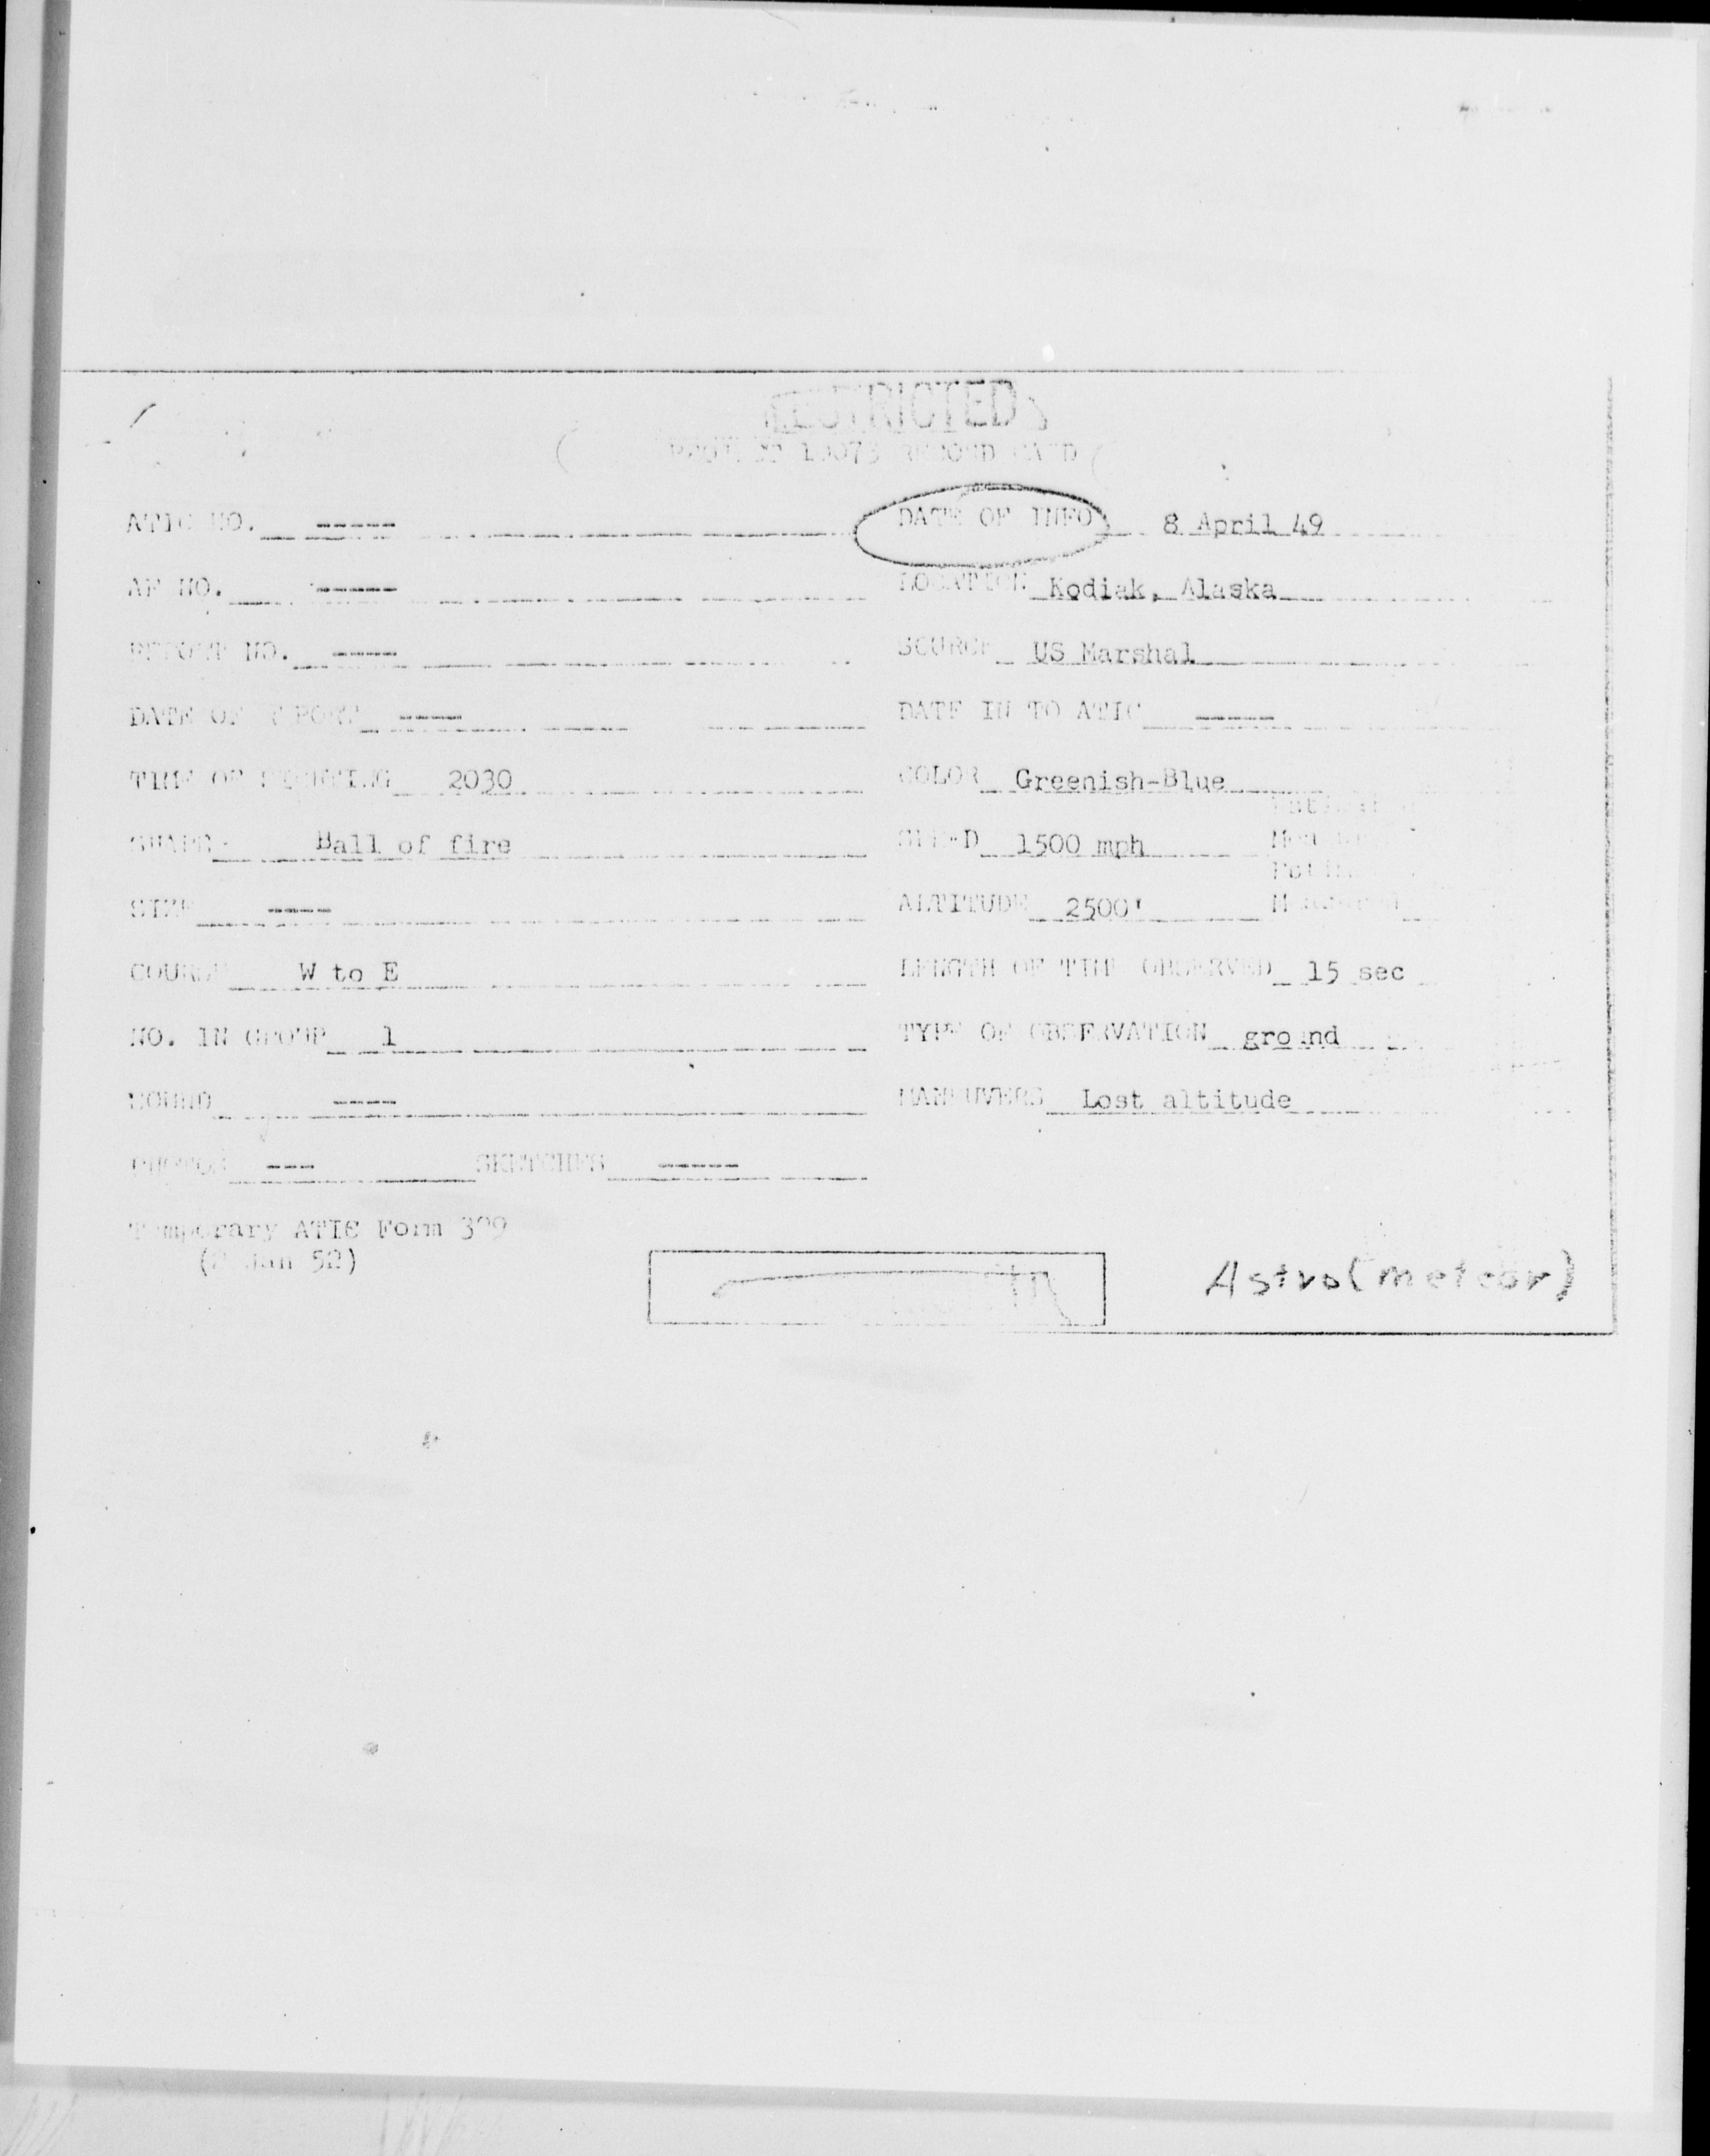 RESTRICTED
PROJECT 10073 RECORD CARD
ATIC NO. ----- DATE OF INFO 8 April 49
AF NO. ----- LOCATION Kodiak, Alaska
REPORT NO. ---- SOURCE US Marshal
DATE OF REPORT ---- DATE IN TO ATIC -----
TIME OF SIGHTING 2030 COLOR Greenish-Blue
SHAPE Ball of fire SPEED 1500 mph
SIZE ---- ALTITUDE 2500'
COURSE W to E LENGTH OF TIME OBSERVED 15 sec
NO. IN GROUP 1 TYPE OF OBSERVATION ground
SOUND ---- MANEUVERS Lost altitude
PHOTOS --- SKETCHES -----
Temporary ATIC Form 329
(2 Jan 52)
Astro (meteor)